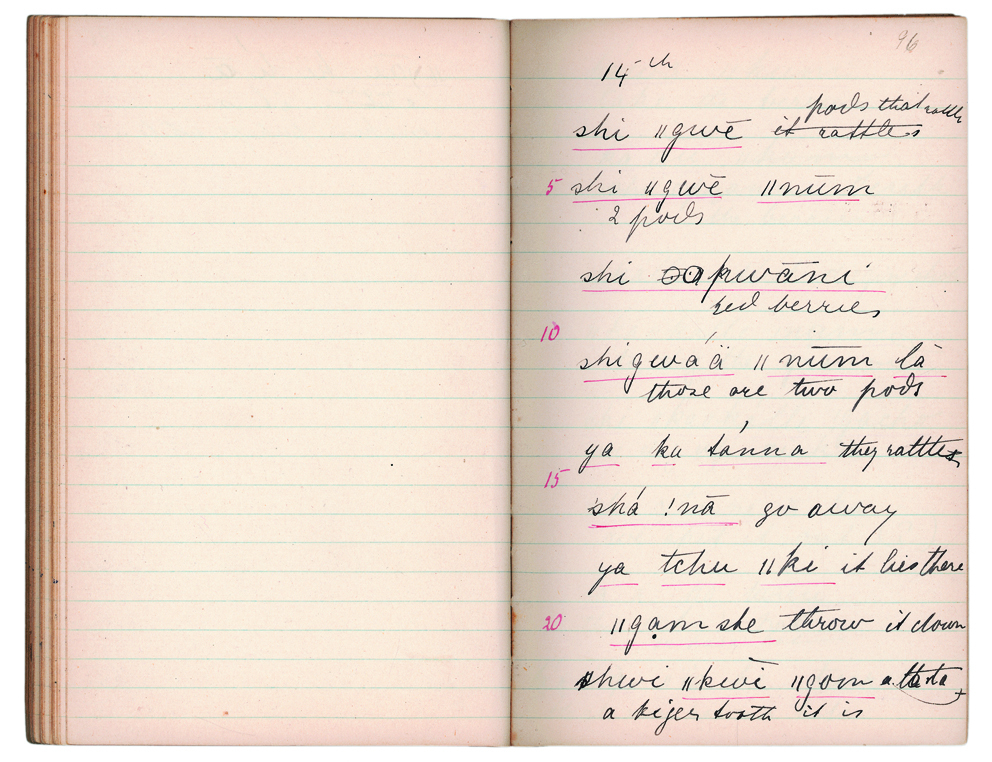 96
14th
pods that rattle
shi ǁgwē it rattles
5 shi ǁgwē ǁnūm
2 pods
shi kwāni
red berries
10
shigwáä ǁnūm
those are two pods
ya ka tánna they rattle
15
shá !nā go away
ya tchu ǁki it lies there
20 ǁgạm she throw it down
shwi ǁkwē ǁgom a
a tiger tooth it is